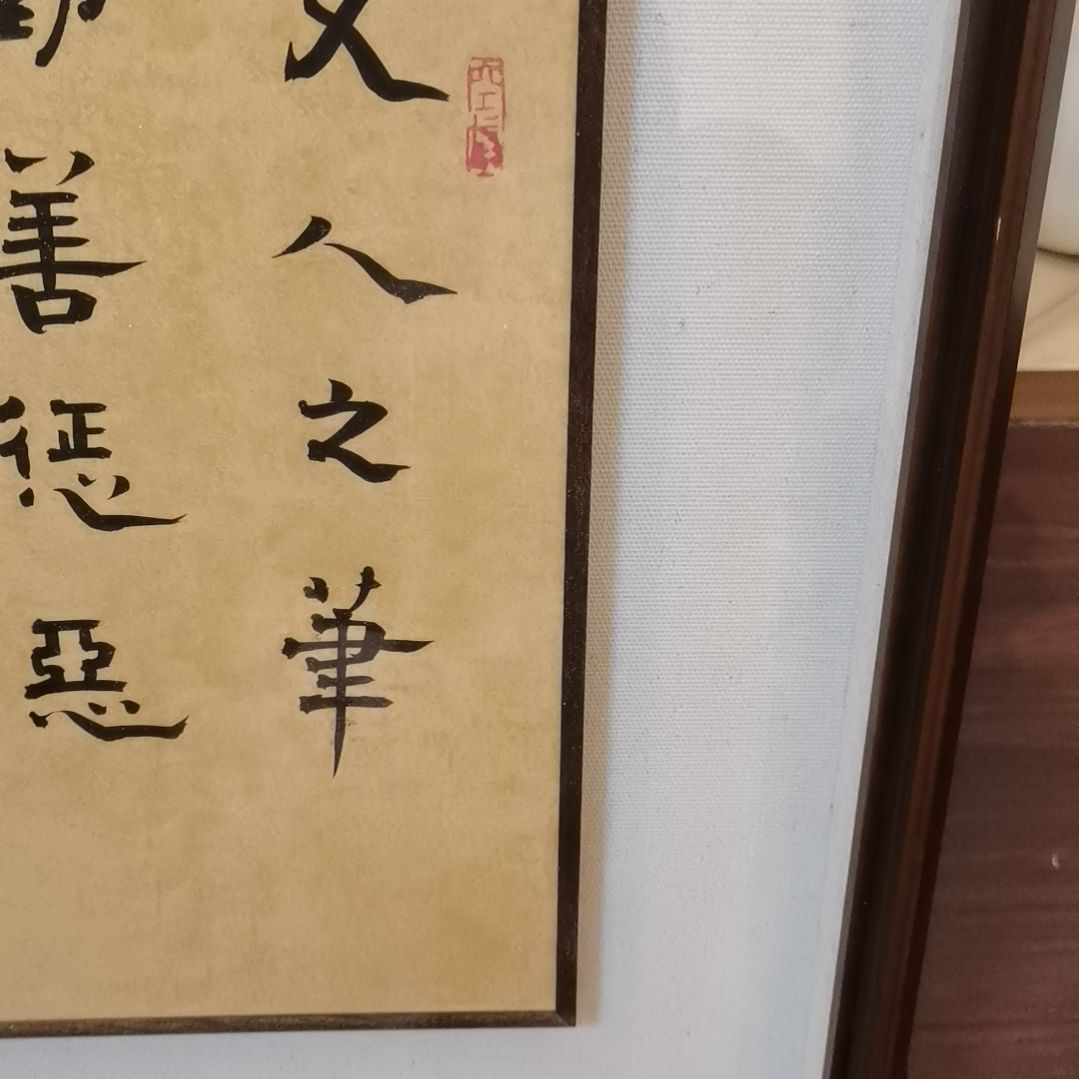 文人之筆
勸善懲惡